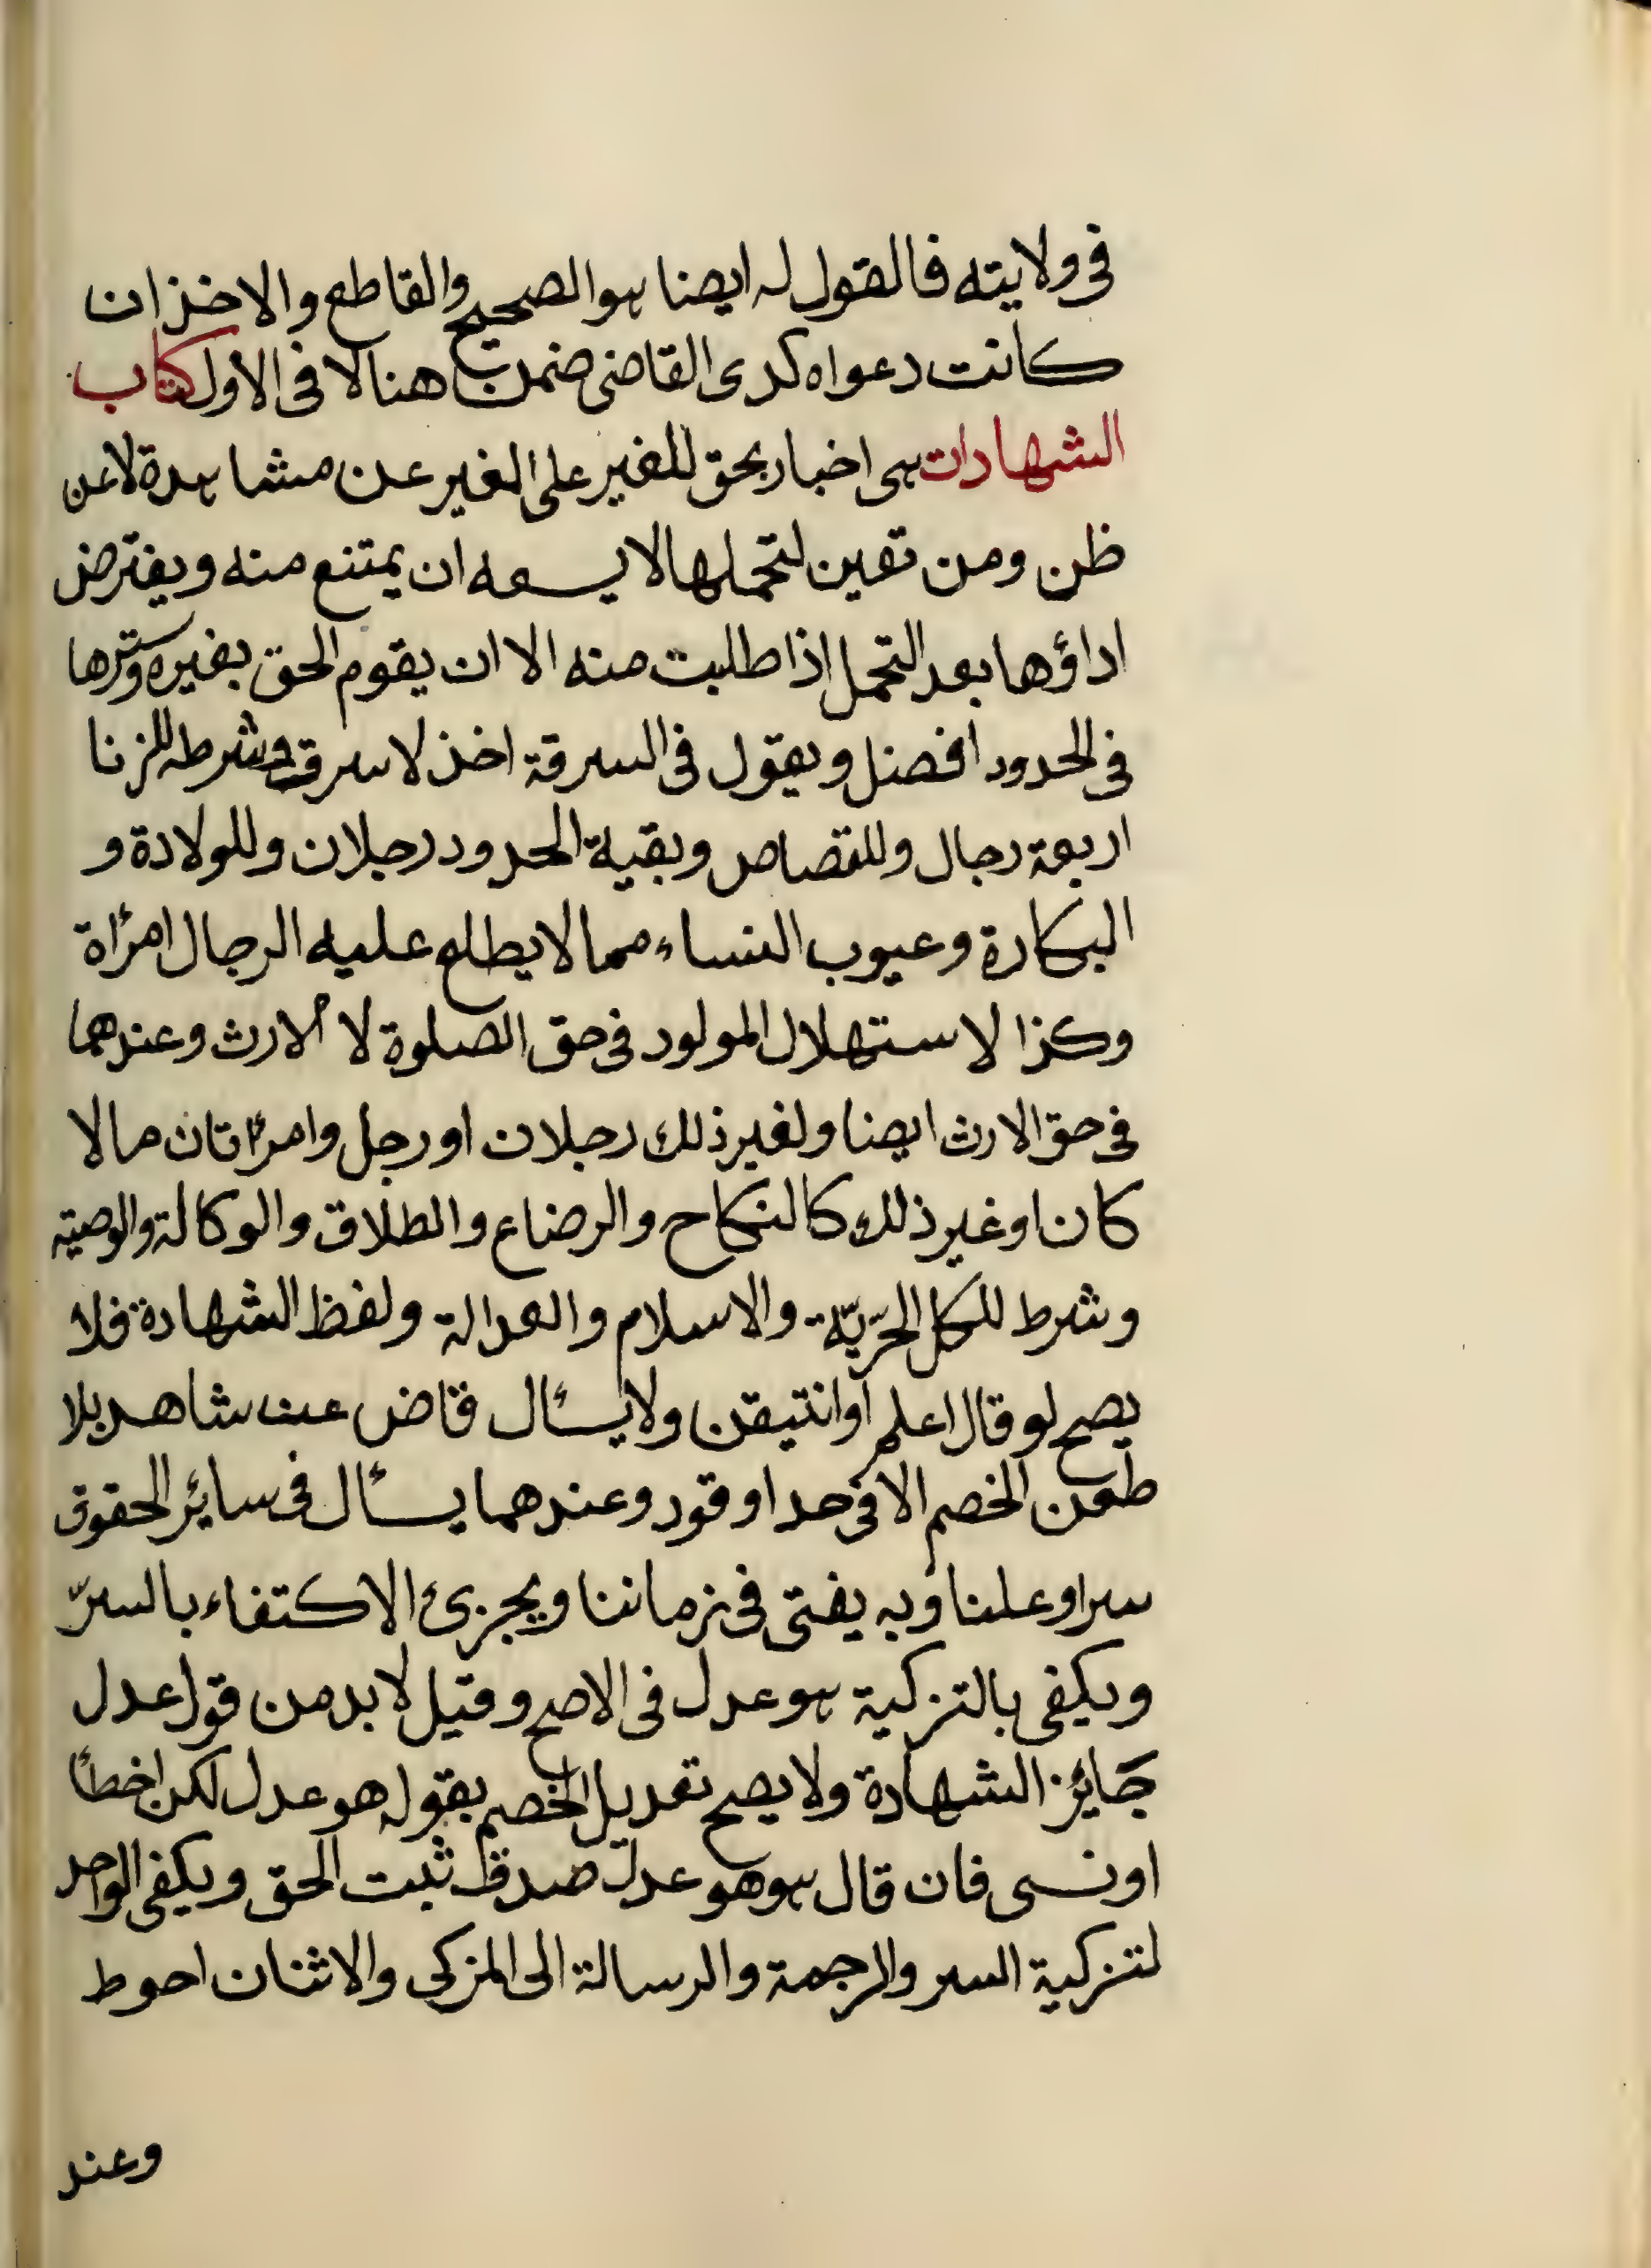 فى ولايته فالقول له ايضا هو الصحيح والقاطع والاخذ ان
كانت دعواه كدى القاضى ضمن هنا لا فى الاول كتاب
الشهادات هى اخبار بحق للغير على الغير عن مشاهدة لا عن
ظن ومن تعين لتحملها لا يسعه ان يمتنع منه ويفترض
اداؤها بعد التحمل اذا طلبت منه الا ان يقوم الحق بغيره وسترها
فى الحدود افضل ويقول فى السرقة اخذ لا سرق وشرط للزنا
اربعة رجال وللقصاص وبقية الحدود رجلان وللولادة و
البكارة وعيوب النساء مما لا يطلع عليه الرجال امرأة
وكذا لاستهلال المولود فى حق الصلوة لا الارث وعندهما
فى حق الارث ايضا ولغير ذلك رجلان او رجل وامرأتان مالا
كان او غير ذلك كالنكاح والرضاع والطلاق والوكالة والوصية
وشرط للكل الحرّيّة والاسلام والعدالة ولفظ الشهادة فلا
يصح لو قال اعلم او اتيقن ولا يسأل قاض عن شاهد بلا
طعن الخصم الا فى حد او قود وعندهما يسأل فى سائر الحقوق
سرا وعلنا وبه يفتى فى زماننا ويجزئ الاكتفاء بالسرّ
ويكفى بالتزكية هو عدل فى الاصح وقيل لا بد من قول عدل
جائز الشهادة ولا يصح تعديل الخصم بقوله هو عدل لكن اخطأ
او نسى فان قال هو هو عدل صدق ثبت الحق ويكفى الواحد
لتزكية السر والرجمة والرسالة الى المزكى والاثنان احوط
وعند